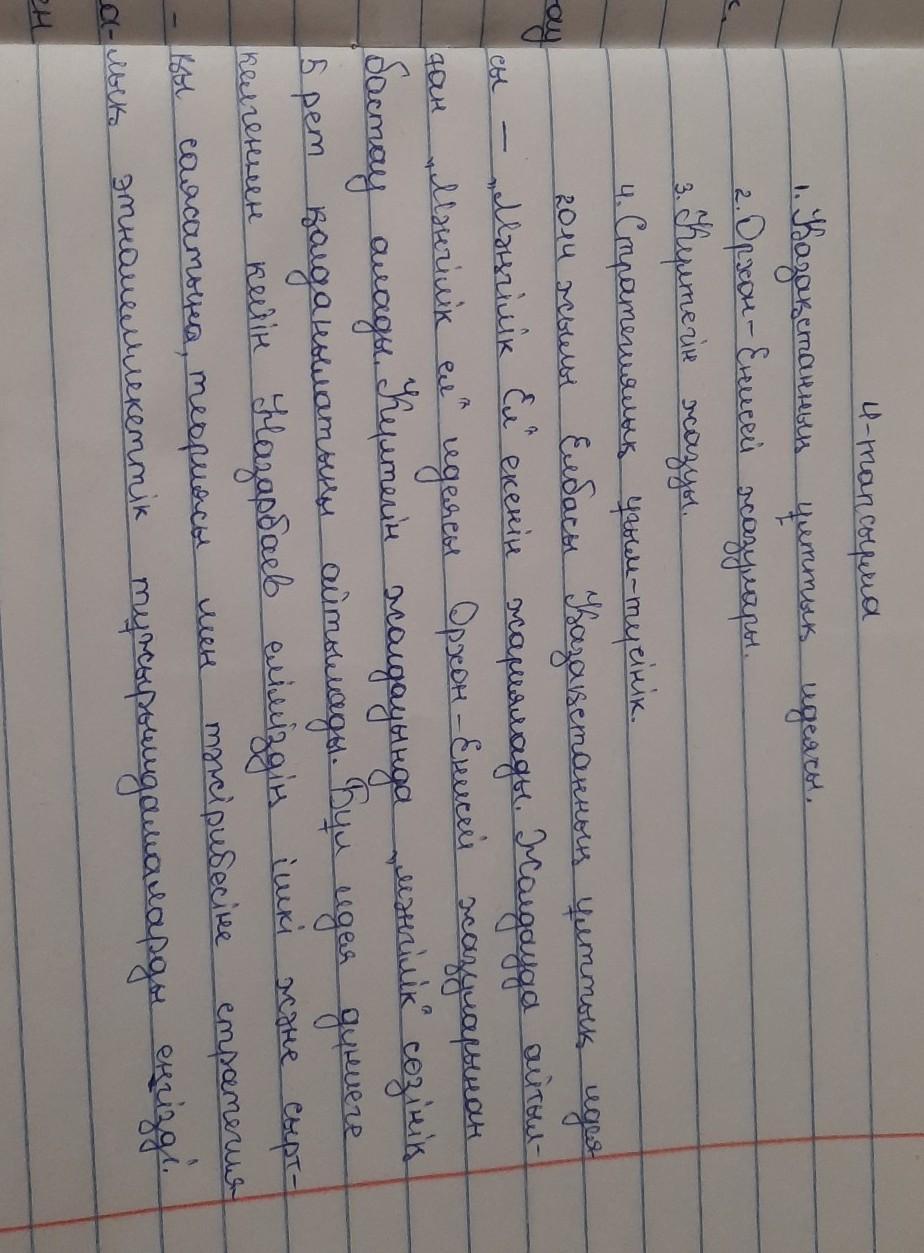 4-тапсырма
1. Қазақстанның ұлттық идеясы.
2. Орхон-Енисей жазулары.
3. Күлтегін жазуы.
4. Стратегиялық ұғым-түсінік.
2014 жылы Елбасы Қазақстанның ұлттық идея
сы — „Мәңгілік Ел" екенін жариялады. Жолдауда айтыл-
ған „Мәңгілік ел" идеясы Орхон-Енисей жазуларынан
бастау алады. Күлтегін жолдауында „мәңгілік" сөзінің
5 рет қолданылатыны айтылады. Бұл идея дүниеге
келгеннен кейін Назарбаев еліміздің ішкі және сырт-
қы саясатына, теориясы мен тәжірибесіне стратегия
лық этномемлекеттік тұжырымдамаларды енгізді.